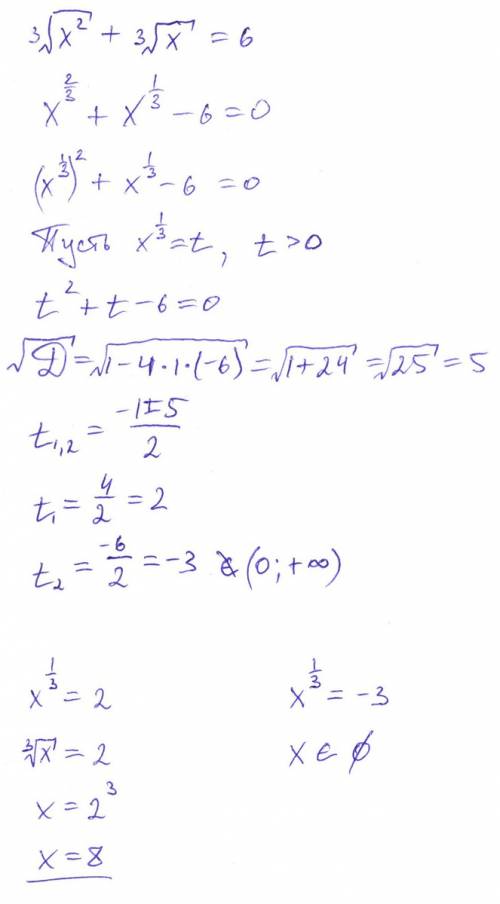 ∛x² + ∛x = 6
x^(2/3) + x^(1/3) − 6 = 0
(x^(1/3))² + x^(1/3) − 6 = 0
Пусть x^(1/3) = t, t > 0
t² + t − 6 = 0
√Д = √1 − 4·1·(−6) = √1 + 24 = √25 = 5
t₁,₂ = (−1 ± 5)/2
t₁ = 4/2 = 2
t₂ = −6/2 = −3 ∉ (0; +∞)
x^(1/3) = 2
∛x = 2
x = 2³
x = 8
x^(1/3) = −3
x ∈ ∅